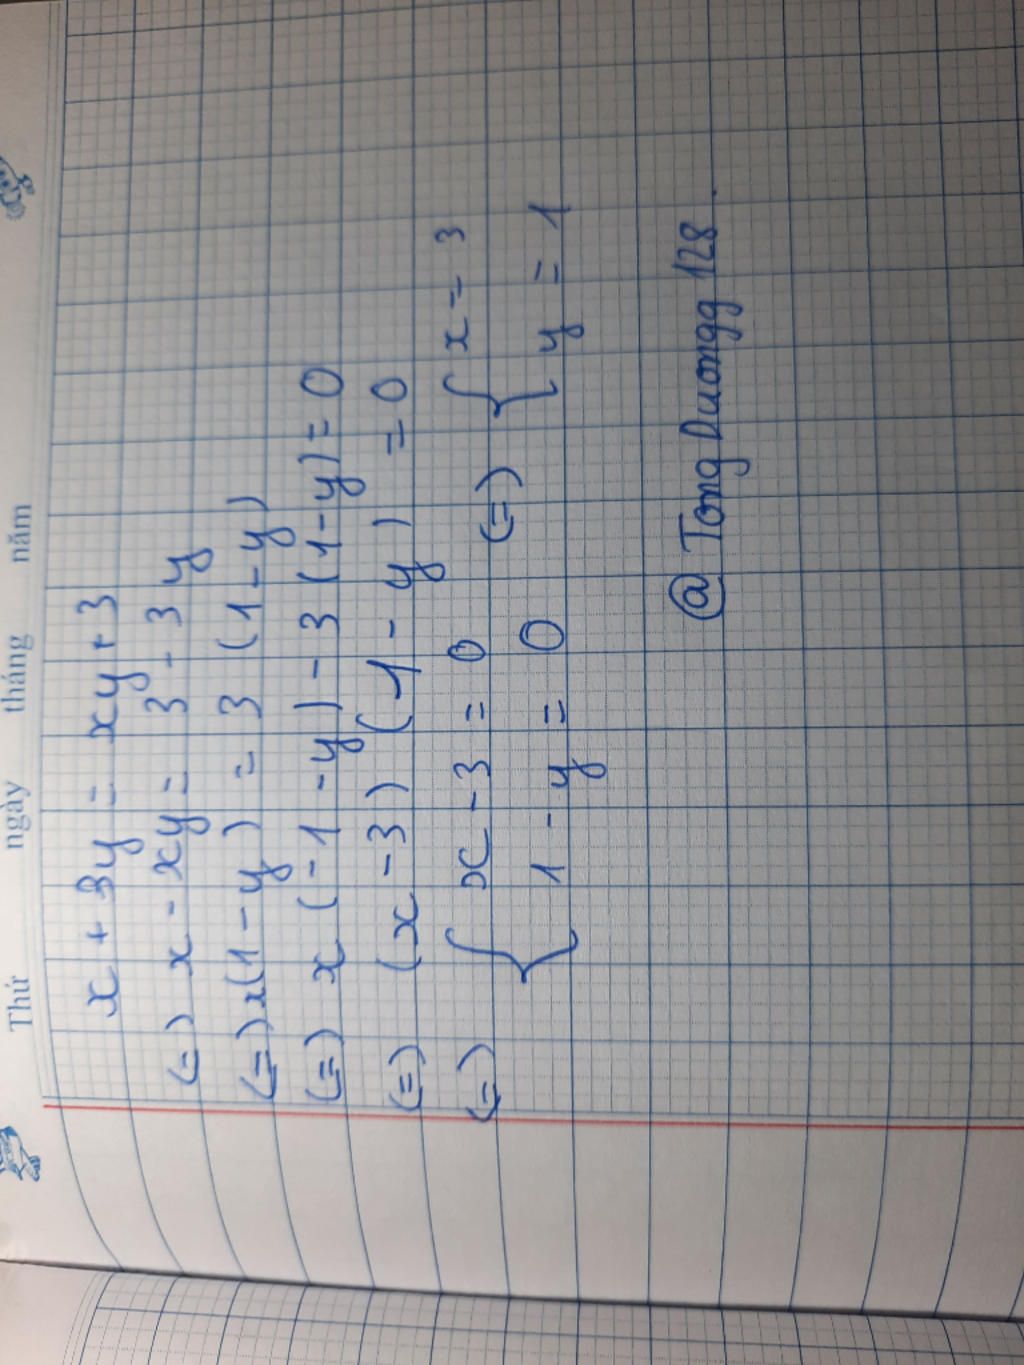 Thứ ngày tháng năm
x + 3y = xy + 3
(=) x - xy = 3 - 3y
(=) x(1 - y) = 3 (1 - y)
(=) x (-1 - y) - 3 (1 - y) = 0
(=) (x - 3) (1 - y) = 0
(=) { x - 3 = 0 (=) { x = 3
1 - y = 0 y = 1
@ Tong Duongg 128.